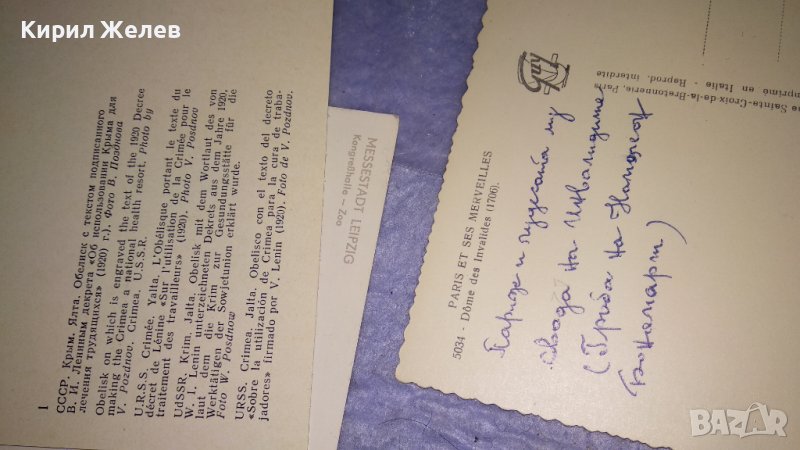 Кирил Желев
1
СССР. Крым. Ялта. Обелиск с текстом подписанного
В. И. Лениным декрета «Об использовании Крыма для
лечения трудящихся» (1920 г.). Фото В. Позднова
Obelisk on which is engraved the text of the 1920 Decree
making the Crimea a national health resort. Photo by
V. Pozdnov. Crimea, U.S.S.R.
U.R.S.S. Crimée. Yalta. L'Obélisque portant le texte du
décret de Lénine «Sur l'utilisation de la Crimée pour le
traitement des travailleurs» (1920). Photo V. Posdnov
UdSSR. Krim. Jalta. Obelisk mit dem Wortlaut des von
W. I. Lenin unterzeichneten Dekrets aus dem Jahre 1920,
laut dem die Krim zur Gesundungsstätte für die
Werktätigen der Sowjetunion erklärt wurde.
Foto W. Posdnow
URSS. Crimea. Jalta. Obelisco con el texto del decreto
«Sobre la utilización de Crimea para la cura de traba-
jadores» firmado por V. Lenin (1920). Foto de V. Pozdnov.
MESSESTADT LEIPZIG
Kongreßhalle — Zoo
PARIS ET SES MERVEILLES
5034 - Dôme des Invalides (1706).
Париж и чудесата му
Сграда на Инвалидите
(Гроба на Наполеон
Бонопарт)
Sainte-Croix-de-la-Bretonnerie, Paris
Imprimé en Italie - Reprod. interdite
BAZAR.BG